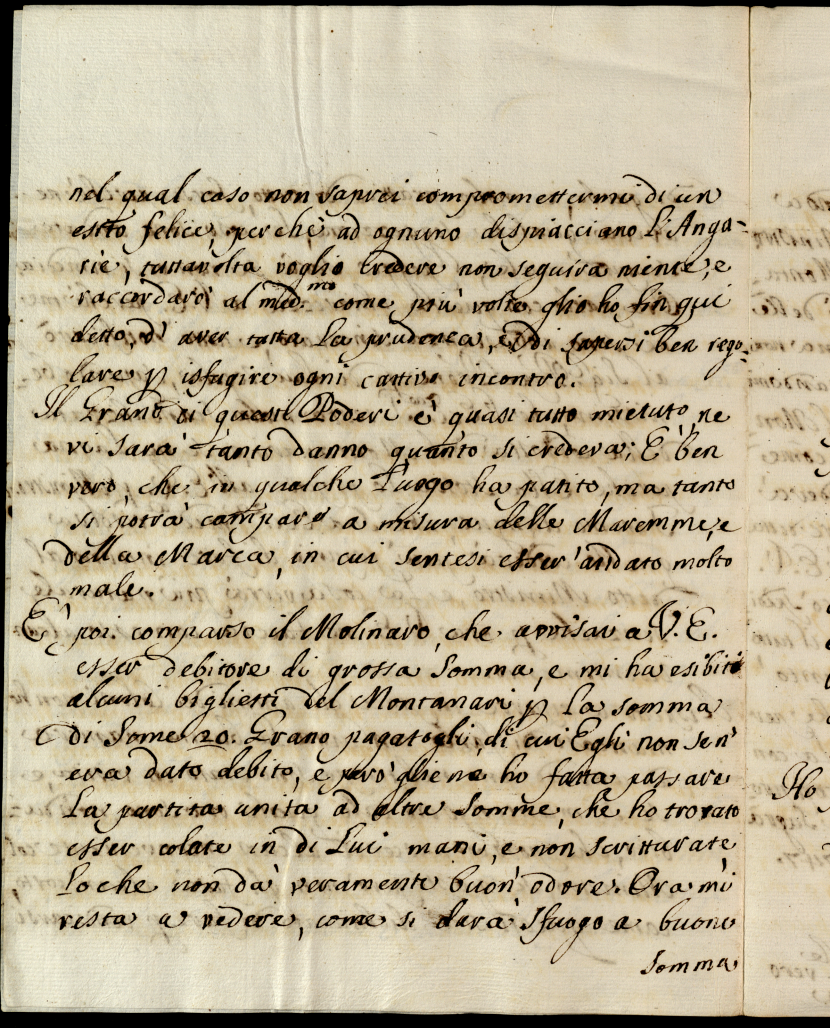 nel qual caso non saprei compromettermi di un
esito felice, perchè ad ognuno dispiacciano l'Anga=
rie, tuttavolta voglio credere non seguirà niente, e
raccordarò al med.mo come più volte glio ho fin qui
detto, d'aver tutta la prudenza, e di sapersi ben rego=
lare p isfugire ogni cattivo incontro.
Il Grano di questi Poderi è quasi tutto mietuto, ne
vi sarà tanto danno quanto si credeva; È ben
vero, che in qualche luogo ha patito, ma tanto
si potrà campare a misura delle Maremme, e
della Marca, in cui sentesi esser' andato molto
male.
È poi comparso il Molinaro, che avvisai a V. E.
esser debitore di grossa somma, e mi ha esibiti
alcuni biglietti del Montanari p la somma
di some 20. Grano pagatogli, di cui Egli non sen'
era dato debito, e però gliene ho fatta passare
la partita unita ad altre somme, che ho trovato
esser colate in di Lui mani, e non scritturate
loche non dà veramente buon' odore. Ora mi
resta a vedere, come si darà sfuogo a buone
somma
Ho